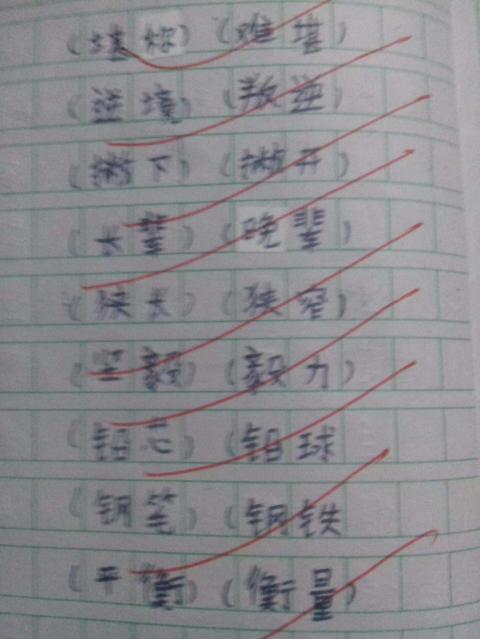 (堪称)(难堪)
(逆境)(叛逆)
(撇下)(撇开)
(长辈)(晚辈)
(狭长)(狭窄)
(坚毅)(毅力)
(铅芯)(铅球)
(钢笔)(钢铁
(平衡)(衡量)